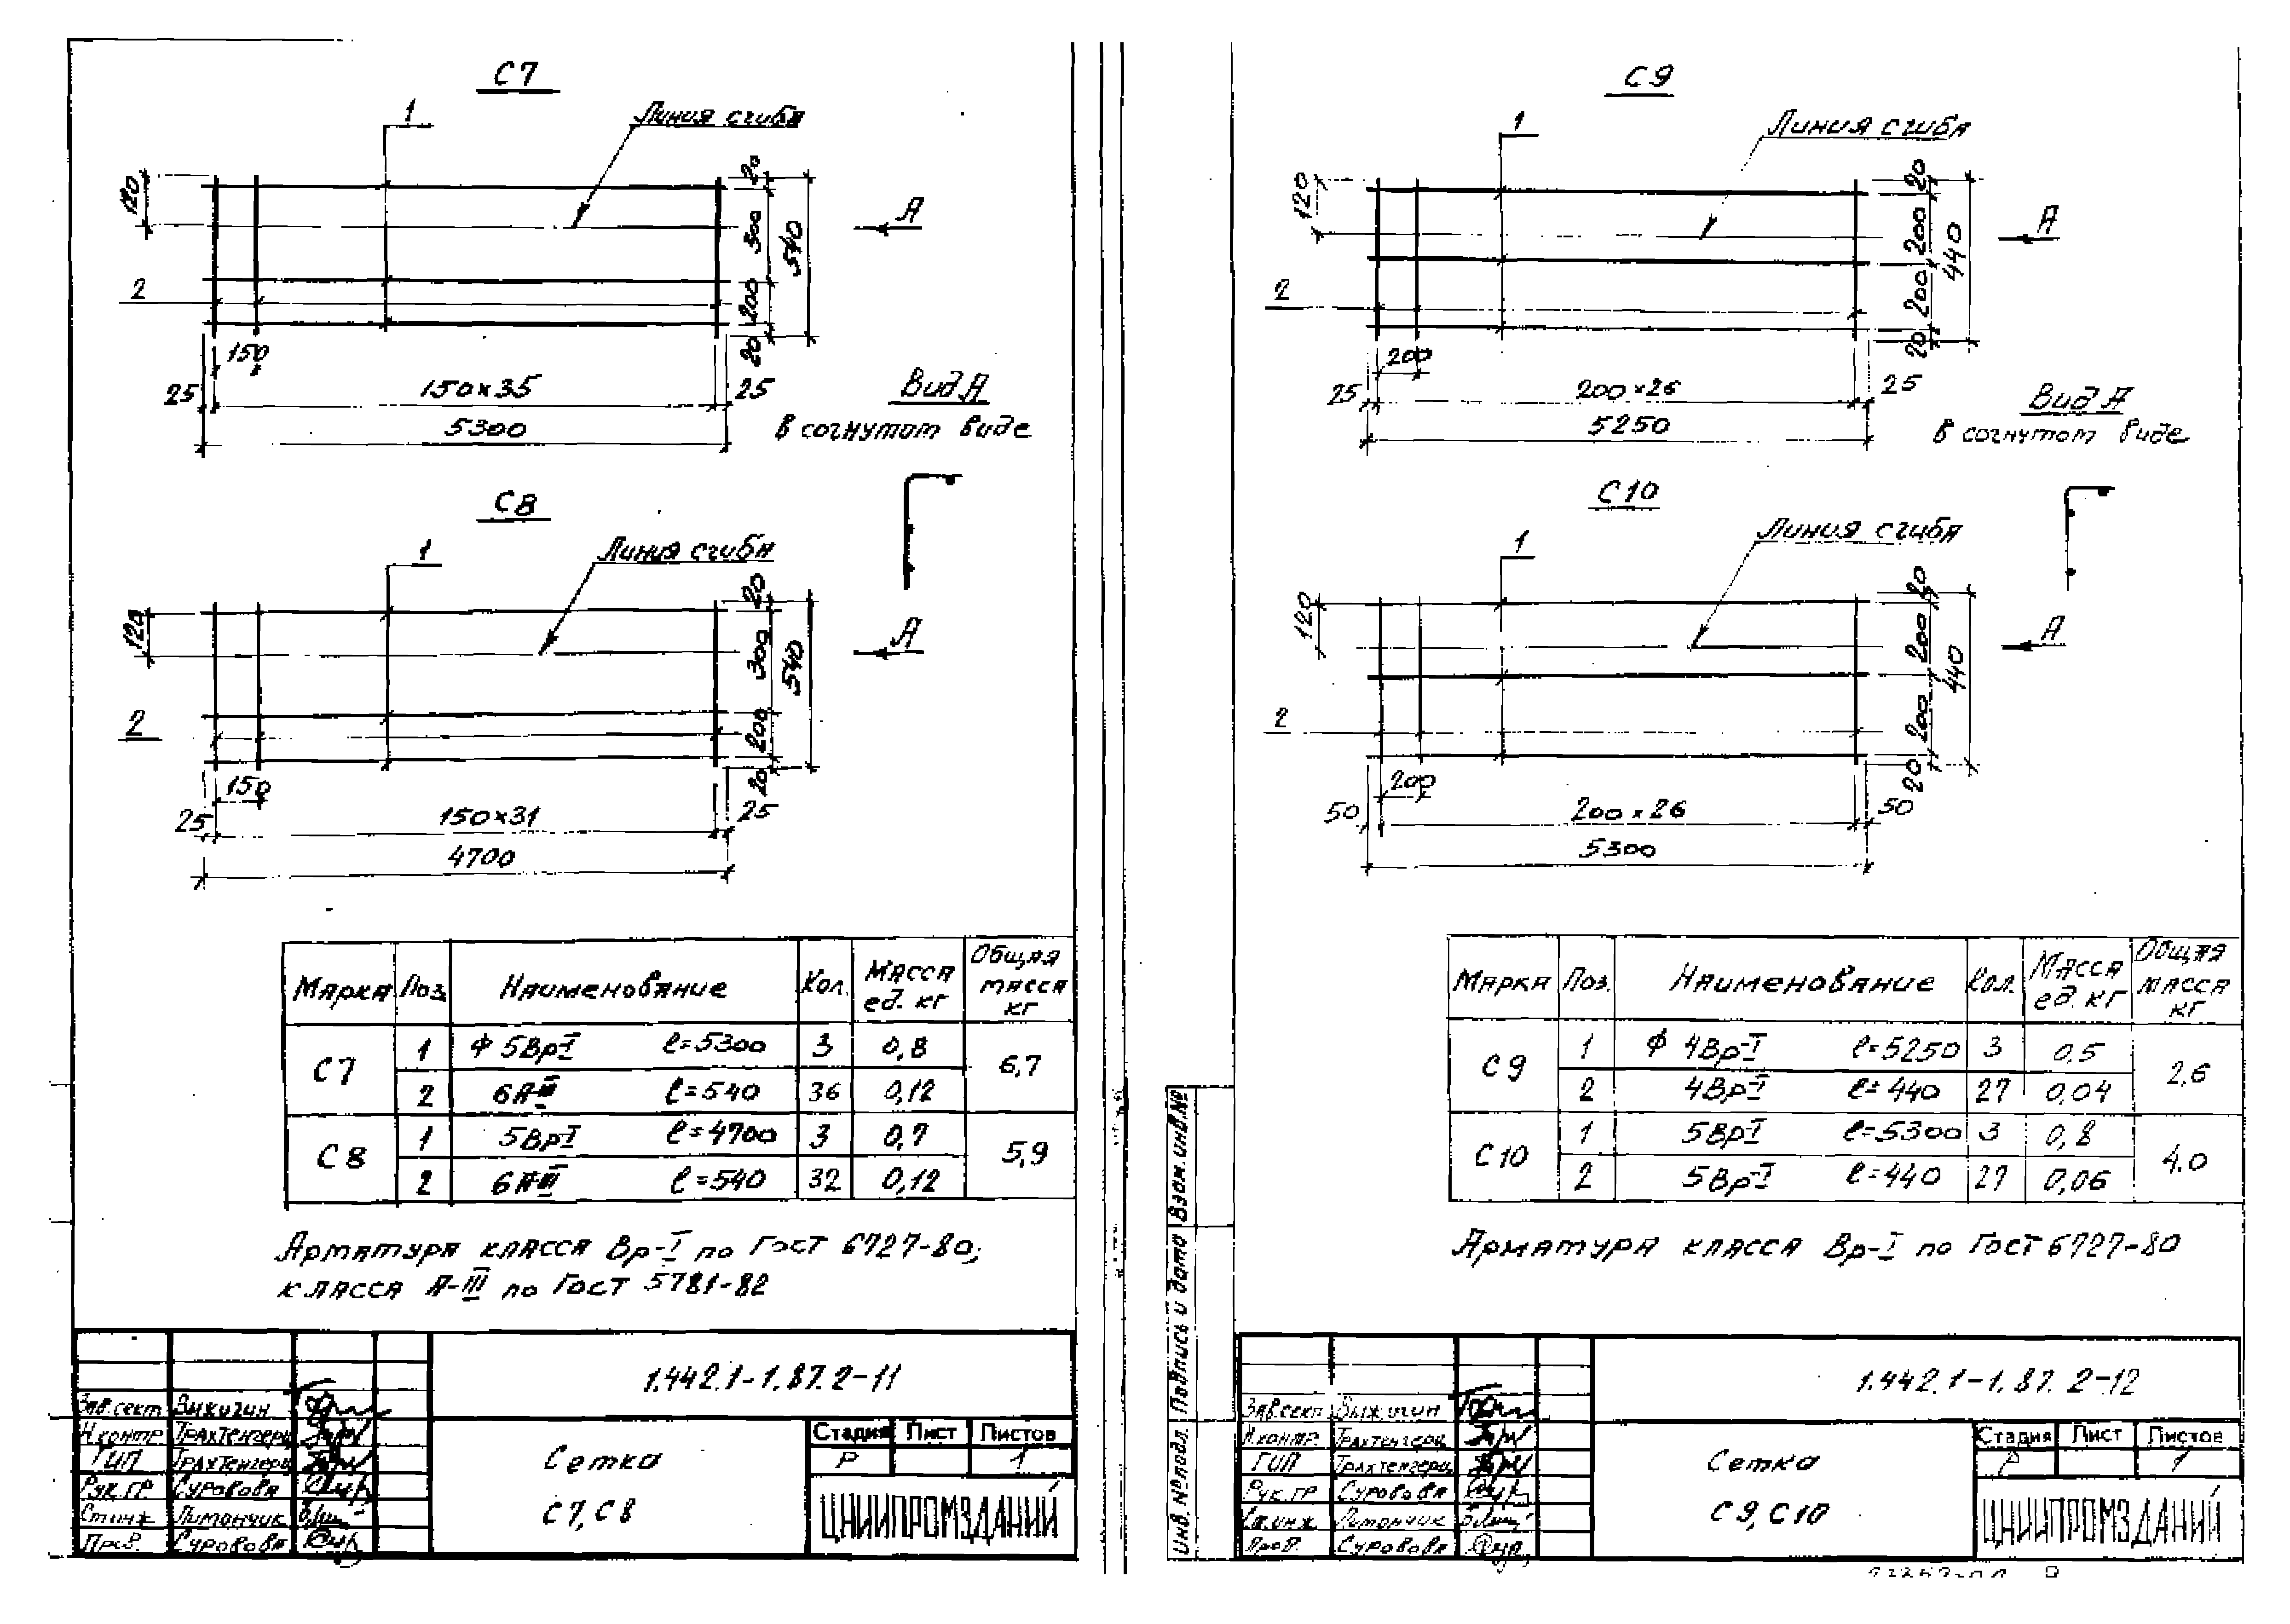 С7
1
Линия сгиба
120
20
300
540
200
20
А
2
150
25
150×35
25
5300
Вид А
в согнутом виде
С8
1
Линия сгиба
120
20
300
540
200
20
А
2
150
25
150×31
25
4700
Марка Поз. Наименование Кол. Масса ед. кг Общая масса кг
С7 1 ϕ 5Вр-I ℓ=5300 3 0,8 6,7
2 6А-III ℓ=540 36 0,12
С8 1 5Вр-I ℓ=4700 3 0,7 5,9
2 6А-III ℓ=540 32 0,12
Арматура класса Вр-I по Гост 6727-80;
класса А-III по Гост 5781-82
1.442.1-1.87.2-11
Зав.сект
Н.контр. Трахтенгерц
ГИП Трахтенгерц
Рук.гр. Суровова
Ст.инж Лимончик
Пров. Суровова
Сетка
С7, С8
Стадия Лист Листов
Р 1
ЦНИИПРОМЗДАНИЙ
С9
1
Линия сгиба
120
20
200
440
200
20
А
2
200
25
200×26
25
5250
Вид А
в согнутом виде
С10
1
Линия сгиба
120
20
200
440
200
20
А
2
200
50
200×26
50
5300
Марка Поз. Наименование Кол. Масса ед. кг Общая масса кг
С9 1 ϕ 4Вр-I ℓ=5250 3 0,5 2,6
2 4Вр-I ℓ=440 27 0,04
С10 1 5Вр-I ℓ=5300 3 0,8 4.0
2 5Вр-I ℓ=440 27 0,06
Арматура класса Вр-I по Гост 6727-80
Инв. № подл. Подпись и дата Взам. инв. №
1.442.1-1.87.2-12
Зав.сект Выжигин
Н.контр. Трахтенгерц
ГИП Трахтенгерц
Рук.гр. Суровова
Ст.инж Лимончик
Пров. Суровова
Сетка
С9, С10
Стадия Лист Листов
Р 1
ЦНИИПРОМЗДАНИЙ